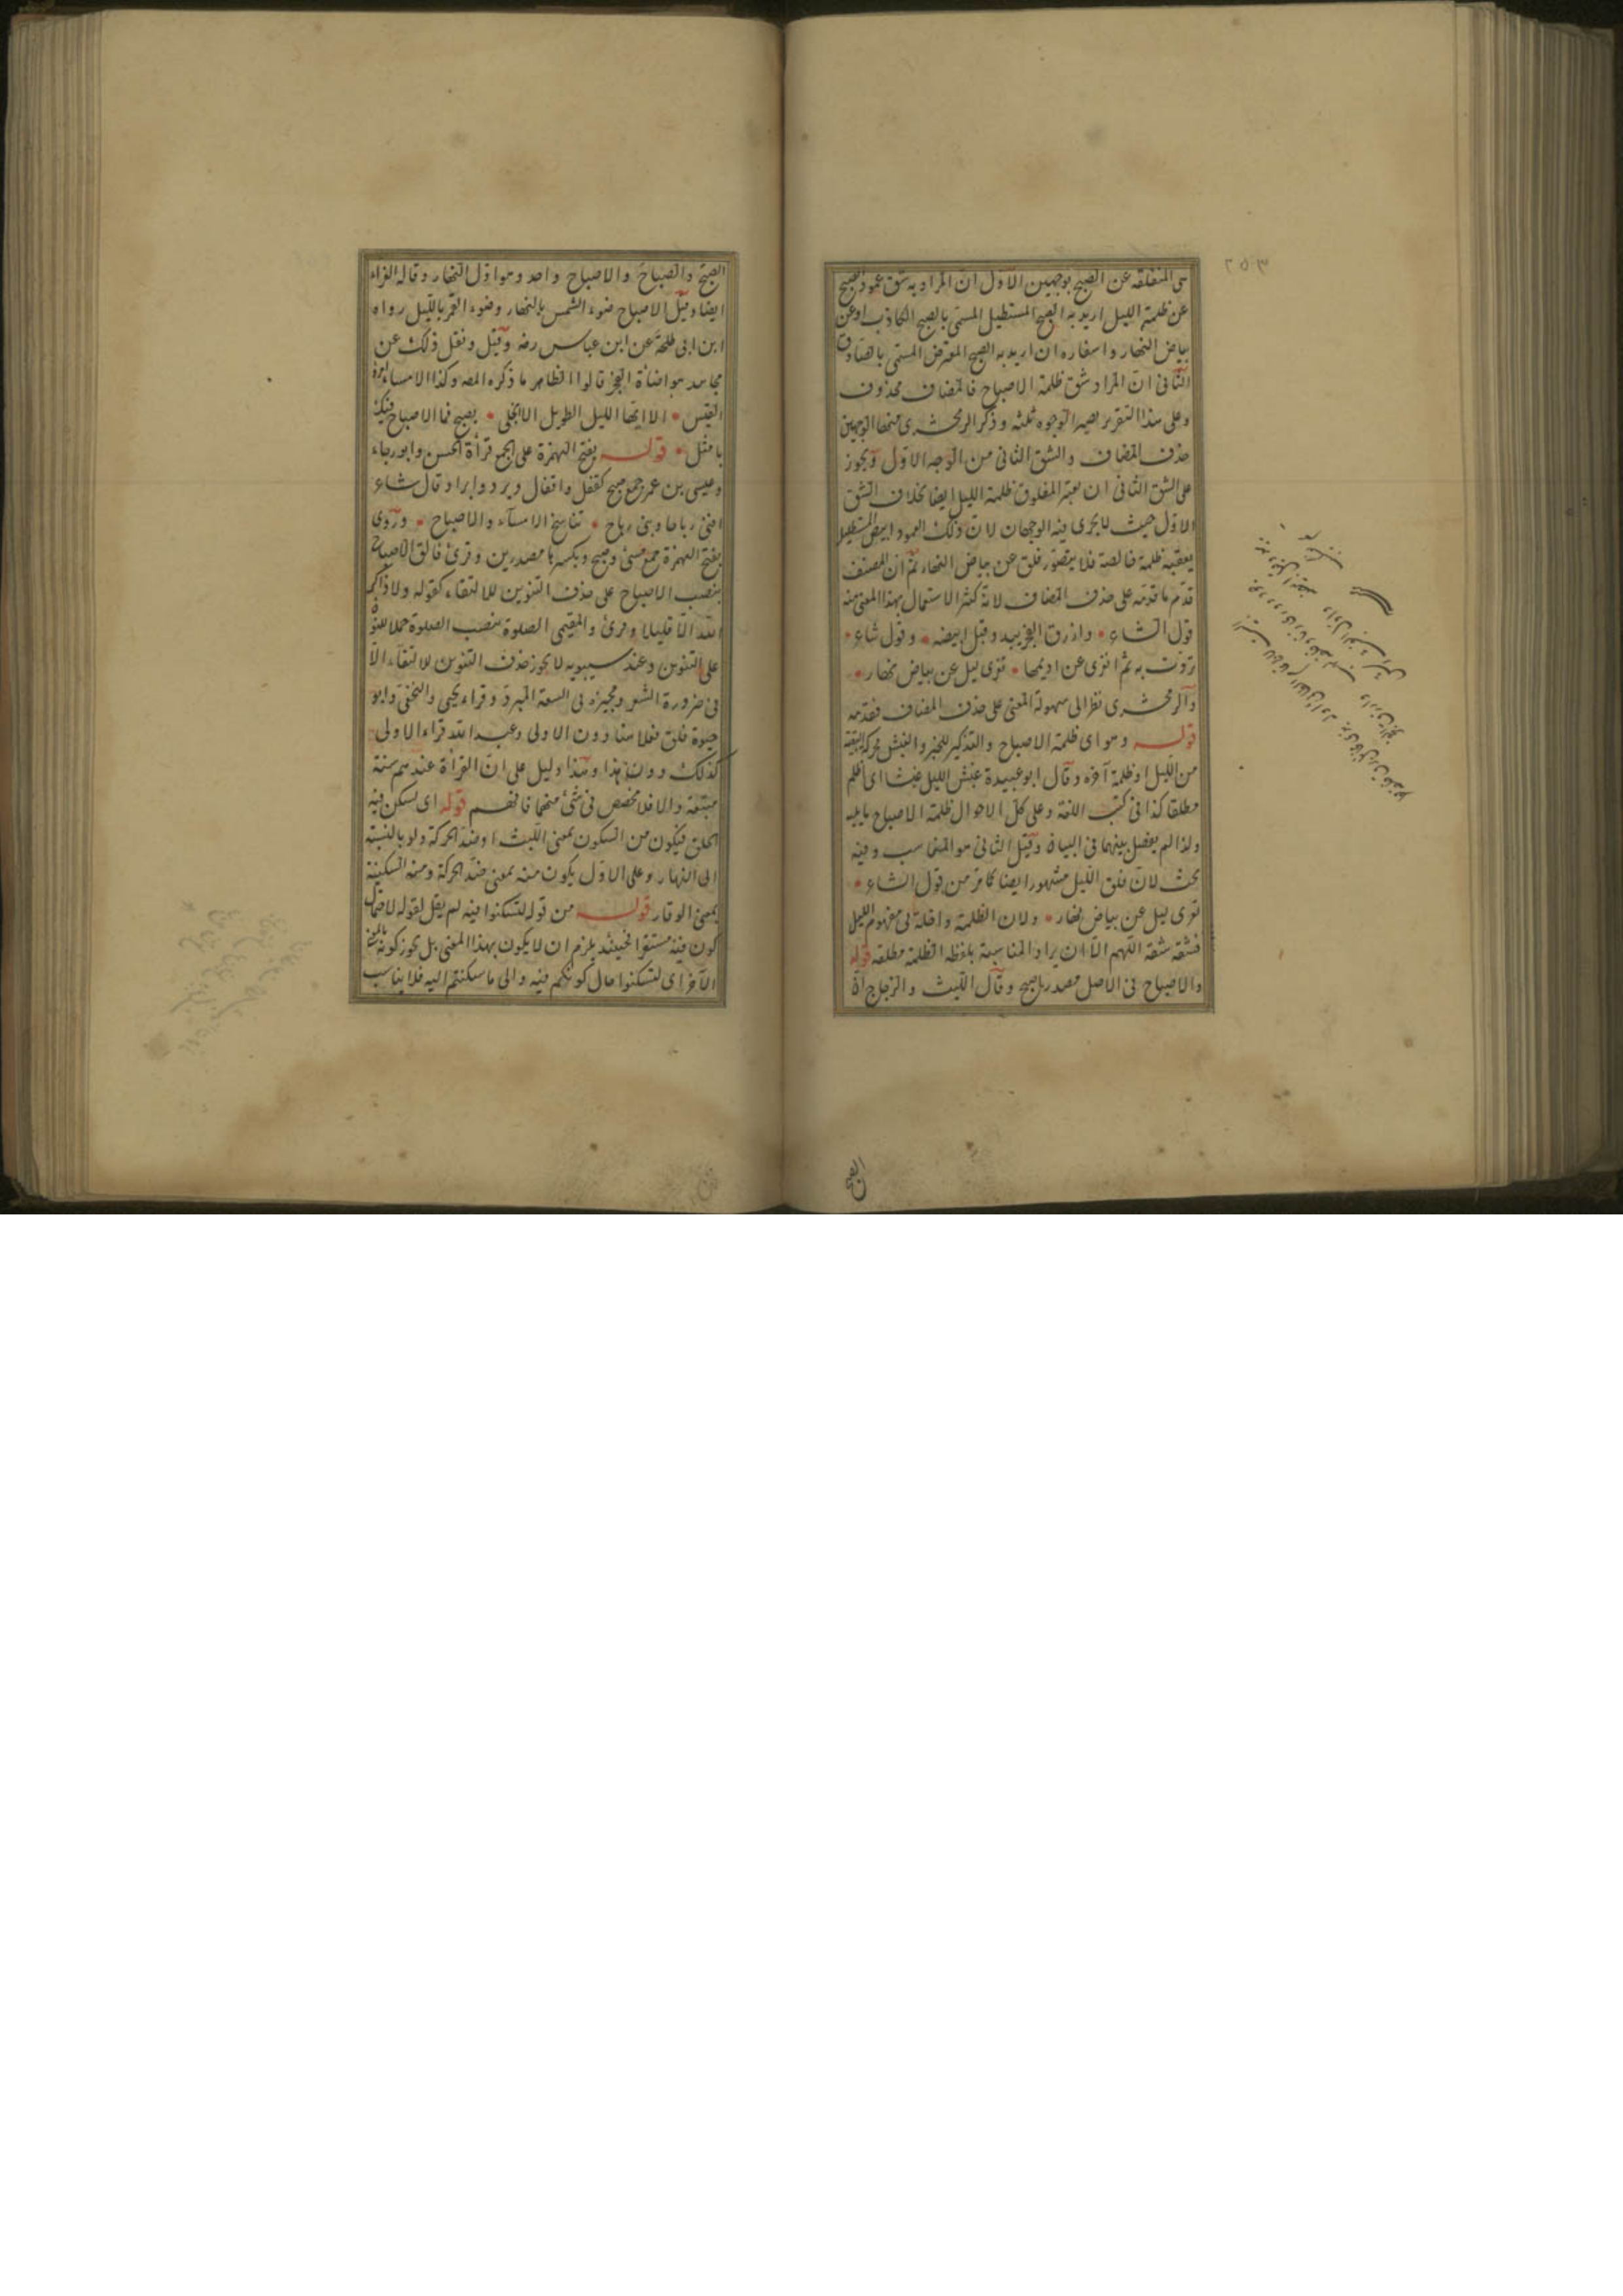 هى المنفلقة عن الصبح بوجهين الاول ان المراد به شق عمود الصبح
عن ظلمة الليل اريد به الصبح المستطيل المسمى بالصبح الكاذب او عن
بياض النهار واسفاره ان اريد به الصبح المعترض المسمى بالصادق
الثانى ان المراد شق ظلمة الاصباح فالمضاف محذوف
وعلى هذا التقرير يصير الوجوه ثلثة وذكر الزمخشرى منها الوجهين
حذف المضاف والشق الثانى من الوجه الاول ويجوز
على الشق الثانى ان يعتبر المفلوق ظلمة الليل ايضا بخلاف الشق
الاول حيث لا يجرى فيه الوجهان لان ذلك العمود ابيض المستطيل
يعقبه ظلمة خالصة فلا يتصور فلق عن بياض النهار ثم ان المصنف
قدم ما قدمه على حذف المضاف لانه كثر الاستعمال بهذا المعنى منه
قول الشاعر • وازرق الفجر يبدو قبل ابيضه • وقول شاعر •
تردت به ثم انفرى عن اديمها • تفرى ليل عن بياض نهار •
والزمخشرى نظر الى سهولة المعنى على حذف المضاف فقدمه
قوله وهو اى ظلمة الاصباح والتذكير للخبر والغبش محركة البقية
من الليل او ظلمة آخره وقال ابو عبيدة غبش الليل غبشا اى اظلم
مطلقا كذا فى كتب اللغة وعلى كل الاحوال ظلمة الاصباح يا يليه
ولذا لم يفصل بينهما فى البيان وقيل الثانى هو المناسب وفيه
بحث لان فلق الليل مشهور ايضا كما مر من قول الشاعر •
تفرى ليل عن بياض نهار • ولان الظلمة داخلة فى مفهوم الليل
فشقه شقه اللهم الا ان يراد المناسبة بلفظ الظلمة مطلقه قوله
والاصباح فى الاصل مصدر اصبح وقال الليث والزجاج ان
الصبح
الصبح والصباح والاصباح واحد وهو اول النهار وقاله الفراء
ايضا وقيل الاصباح ضوء الشمس بالنهار وضوء القمر بالليل رواه
ابن ابى طلحة عن ابن عباس رضه وقيل ونقل ذلك عن
مجاهد هو اضاءة الفجر قالوا الظاهر ما ذكره المصه وكذا الامساء امرؤ
القيس • الا ايها الليل الطويل الا انجلى • بصبح فما الاصباح فيك
بامثل • قوله بفتح الهمزة على الجمع قرأة الحسن وابو رجاء
وعيسى بن عمر جمع صبح كقفل واقفال وبرد وابراد قال شاعر
افنى رباحا وبنى رباح • تناسخ الامسآء والاصباح • وروى
بفتح الهمزة جمع مسئ وصبح وبكسرها مصدرين وقرئ فالق الاصباح
بنصب الاصباح على حذف التنوين للالتقاء كقوله ولا ذاكر
الله الا قليلا وقرئ والمقيمى الصلوة بنصب الصلوة حملا للنون
على التنوين وعند سيبويه لا يجوز حذف التنوين للالتقاء الا
فى ضرورة الشعر ومجيزه فى السعة المبرد وقراء يحيى والنخعى وابو
حيوة فلق فعلا ماضيا دون الاولى وعبد الله قراء الاولى
كذلك دون هذا وهذا دليل على ان القرأة عندهم سنة
متبعة والا فلا مخصص فى شئ منهما فافهم قوله اى يسكن فيه
الخلق فيكون من السكون بمعنى اللبث او ضد الحركة ولو بالنسبة
الى النهار وعلى الاول يكون منه بمعنى ضد الحركة ومنه السكينة
بمعنى الوقار قوله من قوله لتسكنوا فيه لم يقل لقوله لاحتمال
كون فيه مستقرا فحينئذ يلزم ان لا يكون بهذا المعنى بل يجوز كونه بالمعنى
الآخر اى لتسكنوا حال كونكم فيه والى ما سكنتم اليه فلا يناسب